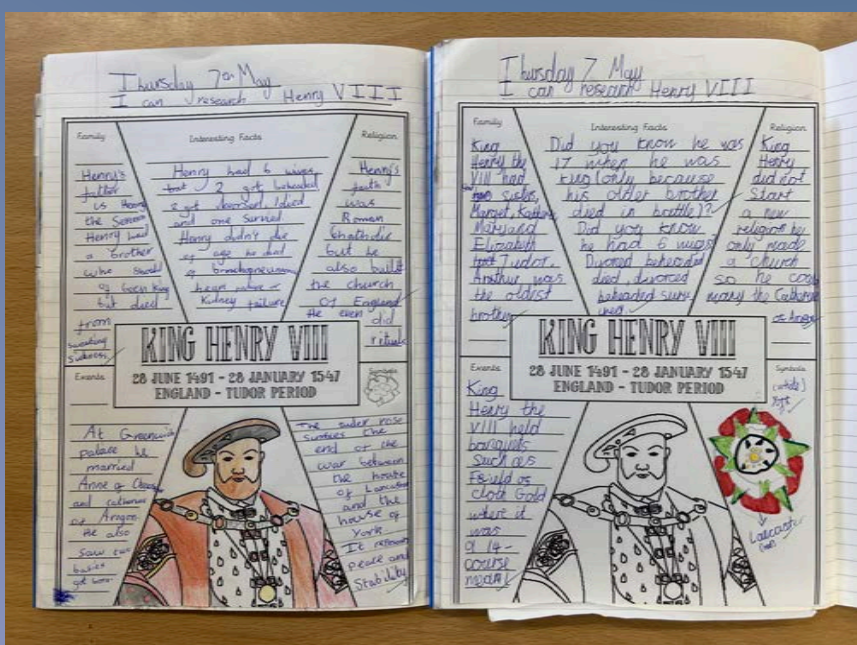 Thursday 7th May
I can research Henry VIII
Family
Henry's
father
is Henry
the
Henry had
a brother
who should
of been King
but died
from
sweating
sickness
Interesting Facts
Henry had 6 wives
that 2 got beheaded
2 got 1 died
and one survied
Henry didn't die
of age he died
of
heart failure or
Kidney failure
Religion
Henry's
faith
was
Roman
but he
also built
the church
of England
He even did
rituals
KING HENRY VIII
28 JUNE 1491 - 28 JANUARY 1547
ENGLAND - TUDOR PERIOD
Events
At Greenwich
palace he
married
Anne of
and
of Aragon
He also
saw
got
Symbols
The tuder rose
the
end of the
war between
the house
of Lancaster
and the
house of
York
It
peace and
Stability
Thursday 7 May
I can research Henry VIII
Family
King
Henry the
VIII had
sisters,
Elizabeth
Tudor.
was
the oldist
brother
Interesting Facts
Did you know he was
17 when he was
king (only because
his older brother
died in )?
Did you know
he had 6
beheaded
died, divorced
beheaded
Religion
King
Henry
did not
Start
a new
religion he
only made
a church
so he
marry the
KING HENRY VIII
28 JUNE 1491 - 28 JANUARY 1547
ENGLAND - TUDOR PERIOD
Events
King
Henry the
VIII held
Such as
of
cloth Gold
where it
was
a 14-
course
Symbols
(white)